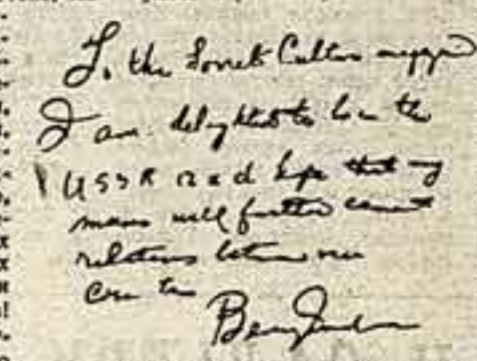 To the Soviet Culture
I am delighted to be in the
USSR and hope that my
music will further cement
relations between our
countries
Benny Goodman